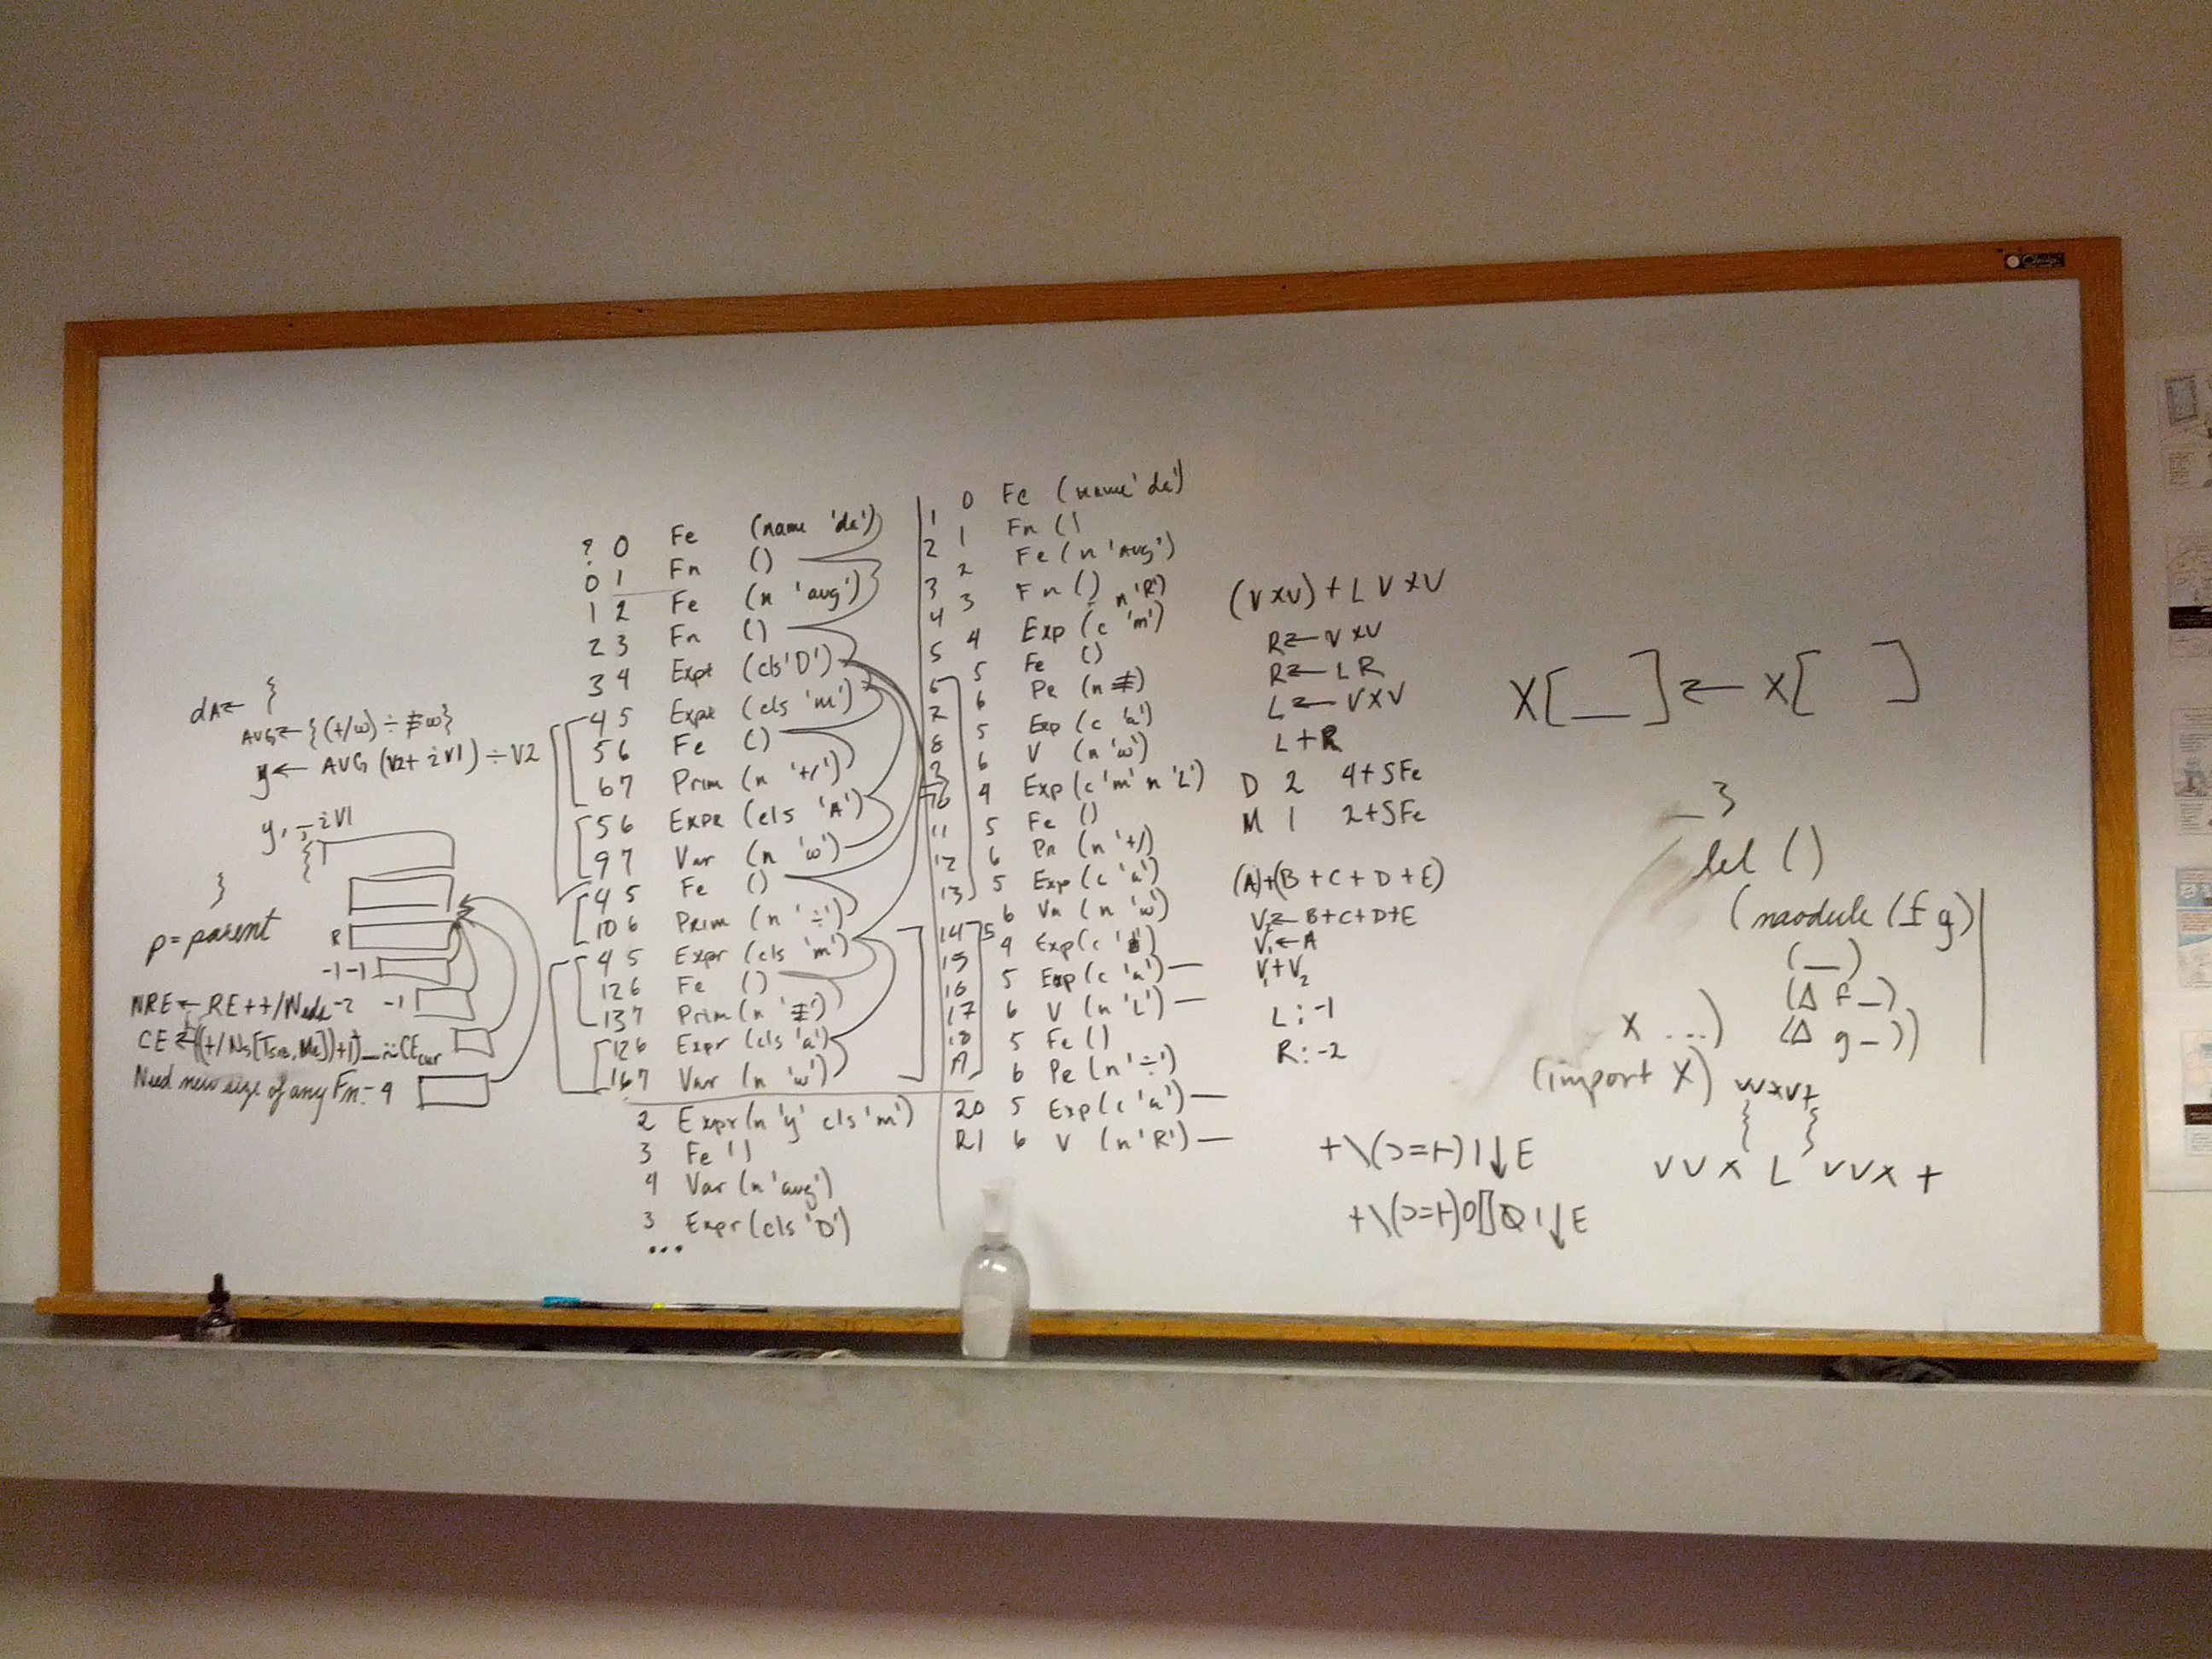 dA← {
AVG← {(+/ω) ÷ ≢ω}
y← AVG (V2+ ¿V1) ÷ V2
}
p = parent
R
-1 -1
-1
Need new size of any Fn - 4
? 0 Fe (name 'da')
0 1 Fn ()
1 2 Fe (n 'avg')
2 3 Fn ()
3 4 Expr (cls 'D')
4 5 Expr (cls 'm')
5 6 Fe ()
6 7 Prim (n '+/')
5 6 Expr (cls 'A')
9 7 Var (n 'ω')
4 5 Fe ()
10 6 Prim (n '÷')
4 5 Expr (cls 'm')
12 6 Fe ()
13 7 Prim (n '≢')
12 6 Expr (cls 'a')
16 7 Var (n 'ω')
2 Expr (n 'y' cls 'm')
3 Fe ()
4 Var (n 'avg')
3 Expr (cls 'D')
...
0 Fe (name 'da')
1 1 Fn ()
2 2 Fe (n 'AVG')
3 3 Fn ()
4 4 Exp (c 'm') n 'R')
5 5 Fe ()
6 6 Pr (n ≢)
7 5 Exp (c 'a')
8 6 V (n 'ω')
9 4 Exp (c 'm' n 'L')
10 5 Fe ()
11 6 Pr (n '+/)
12 5 Exp (c 'a')
13 6 Va (n 'ω')
14 4 Exp (c
15 5 Exp (c 'a') —
16 6 V (n 'L') —
17 5 Fe ()
18 6 Pe (n '÷')
20 5 Exp (c 'a') —
21 6 V (n 'R') —
(V×V) + L V×V
R← V×V
R← L R
L← V×V
L + R
D 2 4+SFe
M 1 2+SFe
(A)+(B + C + D + E)
V₂← B+C+D+E
V₁← A
V₁+V₂
L: -1
R: -2
+\(⊃=⊢)1↓E
+\(⊃=⊢)0⌷⍉1↓E
X[__]← X[ ]
_3
let ()
(module (f g)
(__)
(∆ f _)
(∆ g _))
X ...)
(import X)
VV×V+
VV× L VV× +